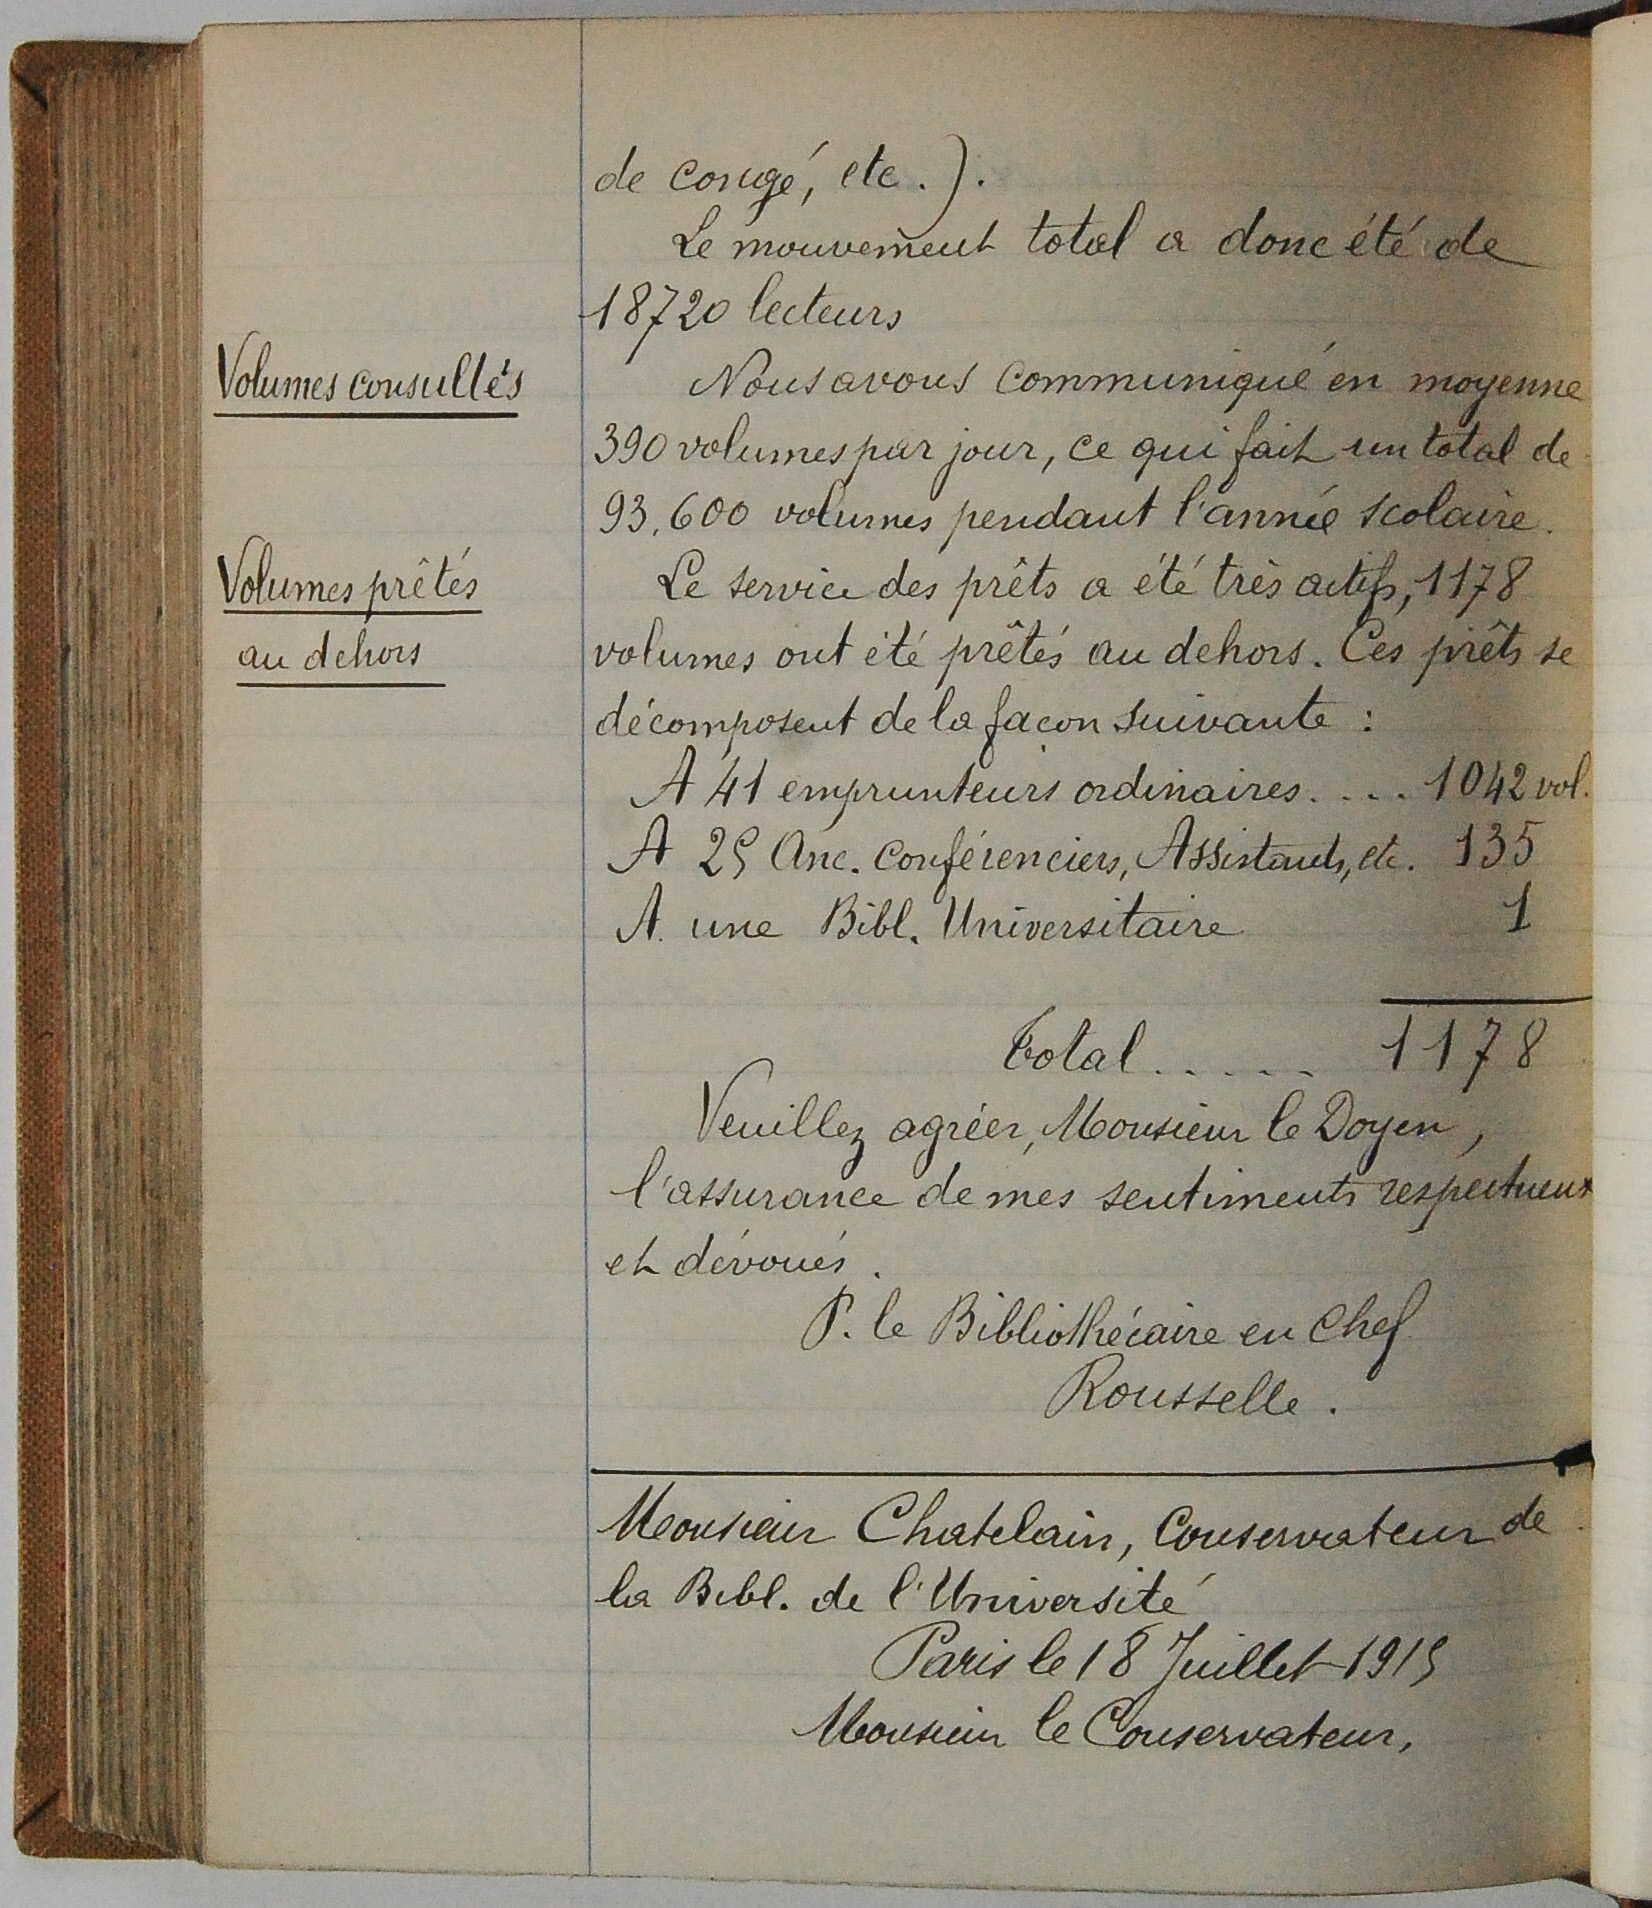 de congé, etc.).
Le mouvement total a donc été de
18720 lecteurs
Volumes consultés
Nous avons communiqué en moyenne
390 volumes par jour, ce qui fait un total de
93.600 volumes pendant l'année scolaire.
Volumes prêtés
au dehors
Le service des prêts a été très actifs, 1178
volumes ont été prêtés au dehors. Ces prêts se
décomposent de la façon suivante :
A 41 emprunteurs ordinaires.... 1042 vol.
A 25 Anc. Conférenciers, Assistants, etc. 135
A une Bibl. Universitaire 1
Total ..... 1178
Veuillez agréer, Monsieur le Doyen,
l'assurance de mes sentiments respectueux
et dévoués.
P. le Bibliothécaire en Chef
Rousselle.
Monsieur Chatelain, Conservateur de
la Bibl. de l'Université
Paris le 18 Juillet 1915
Monsieur le Conservateur,